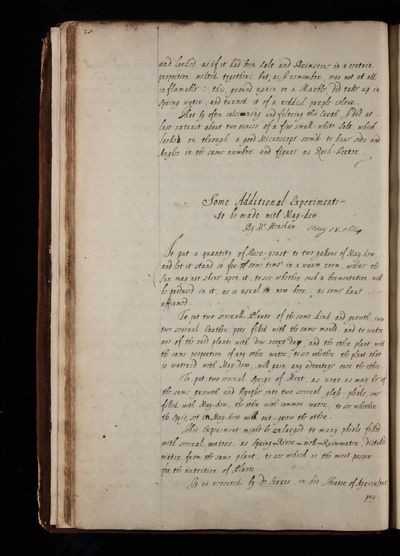 and looked as if it had bin Salt and Brimstone in a certain
proportion melted together: but, as I remember, was not at all
inflamable: this ground again on a Marble did take up in
Spring water, and turned it of a reddish purple colour.
That by often calcineing and filtring this Earth, I did at
last extract about two ounces of a fine small white Salt, which
looked on through a good Microscope seem'd to have sides and
Angles in the same number and figure as Roch-Peeter.
Some Additional Experiments
to be made with May-dew
By Mr Henshaw.
To put a quantity of yeast to two gallons of May-dew
and let it stand so for some time in a warm room, where the
Sun may not shine upon it, to see whether such a fermentation will
be produced in it, as is usual in new beer, as some have
affirmed.
To put two severall Plants of the same kind and growth into
two several Earthen pots filled with the same mould and to water
one of the said plants with dew every day, and the other plant with
the same proportion of any other water, to see whether the plant that
is watered with May-dew, will gain any advantage over the other.
To put two several sprigs of Mint, as near as may be of
the same growth and bigness into two several glass-phials, one
filled with May-dew, the other with common water, to see whether
the sprig set in May-dew will out-grow the other.
This experiment might be enlarged to many phials filled
with several waters, as Spring-River-well-Rainwater, distilled
water from the same plant, to see which is the most proper
for the nutrition of Plants.
It is reported by De Serres, in his Theater of Agriculture
pag.